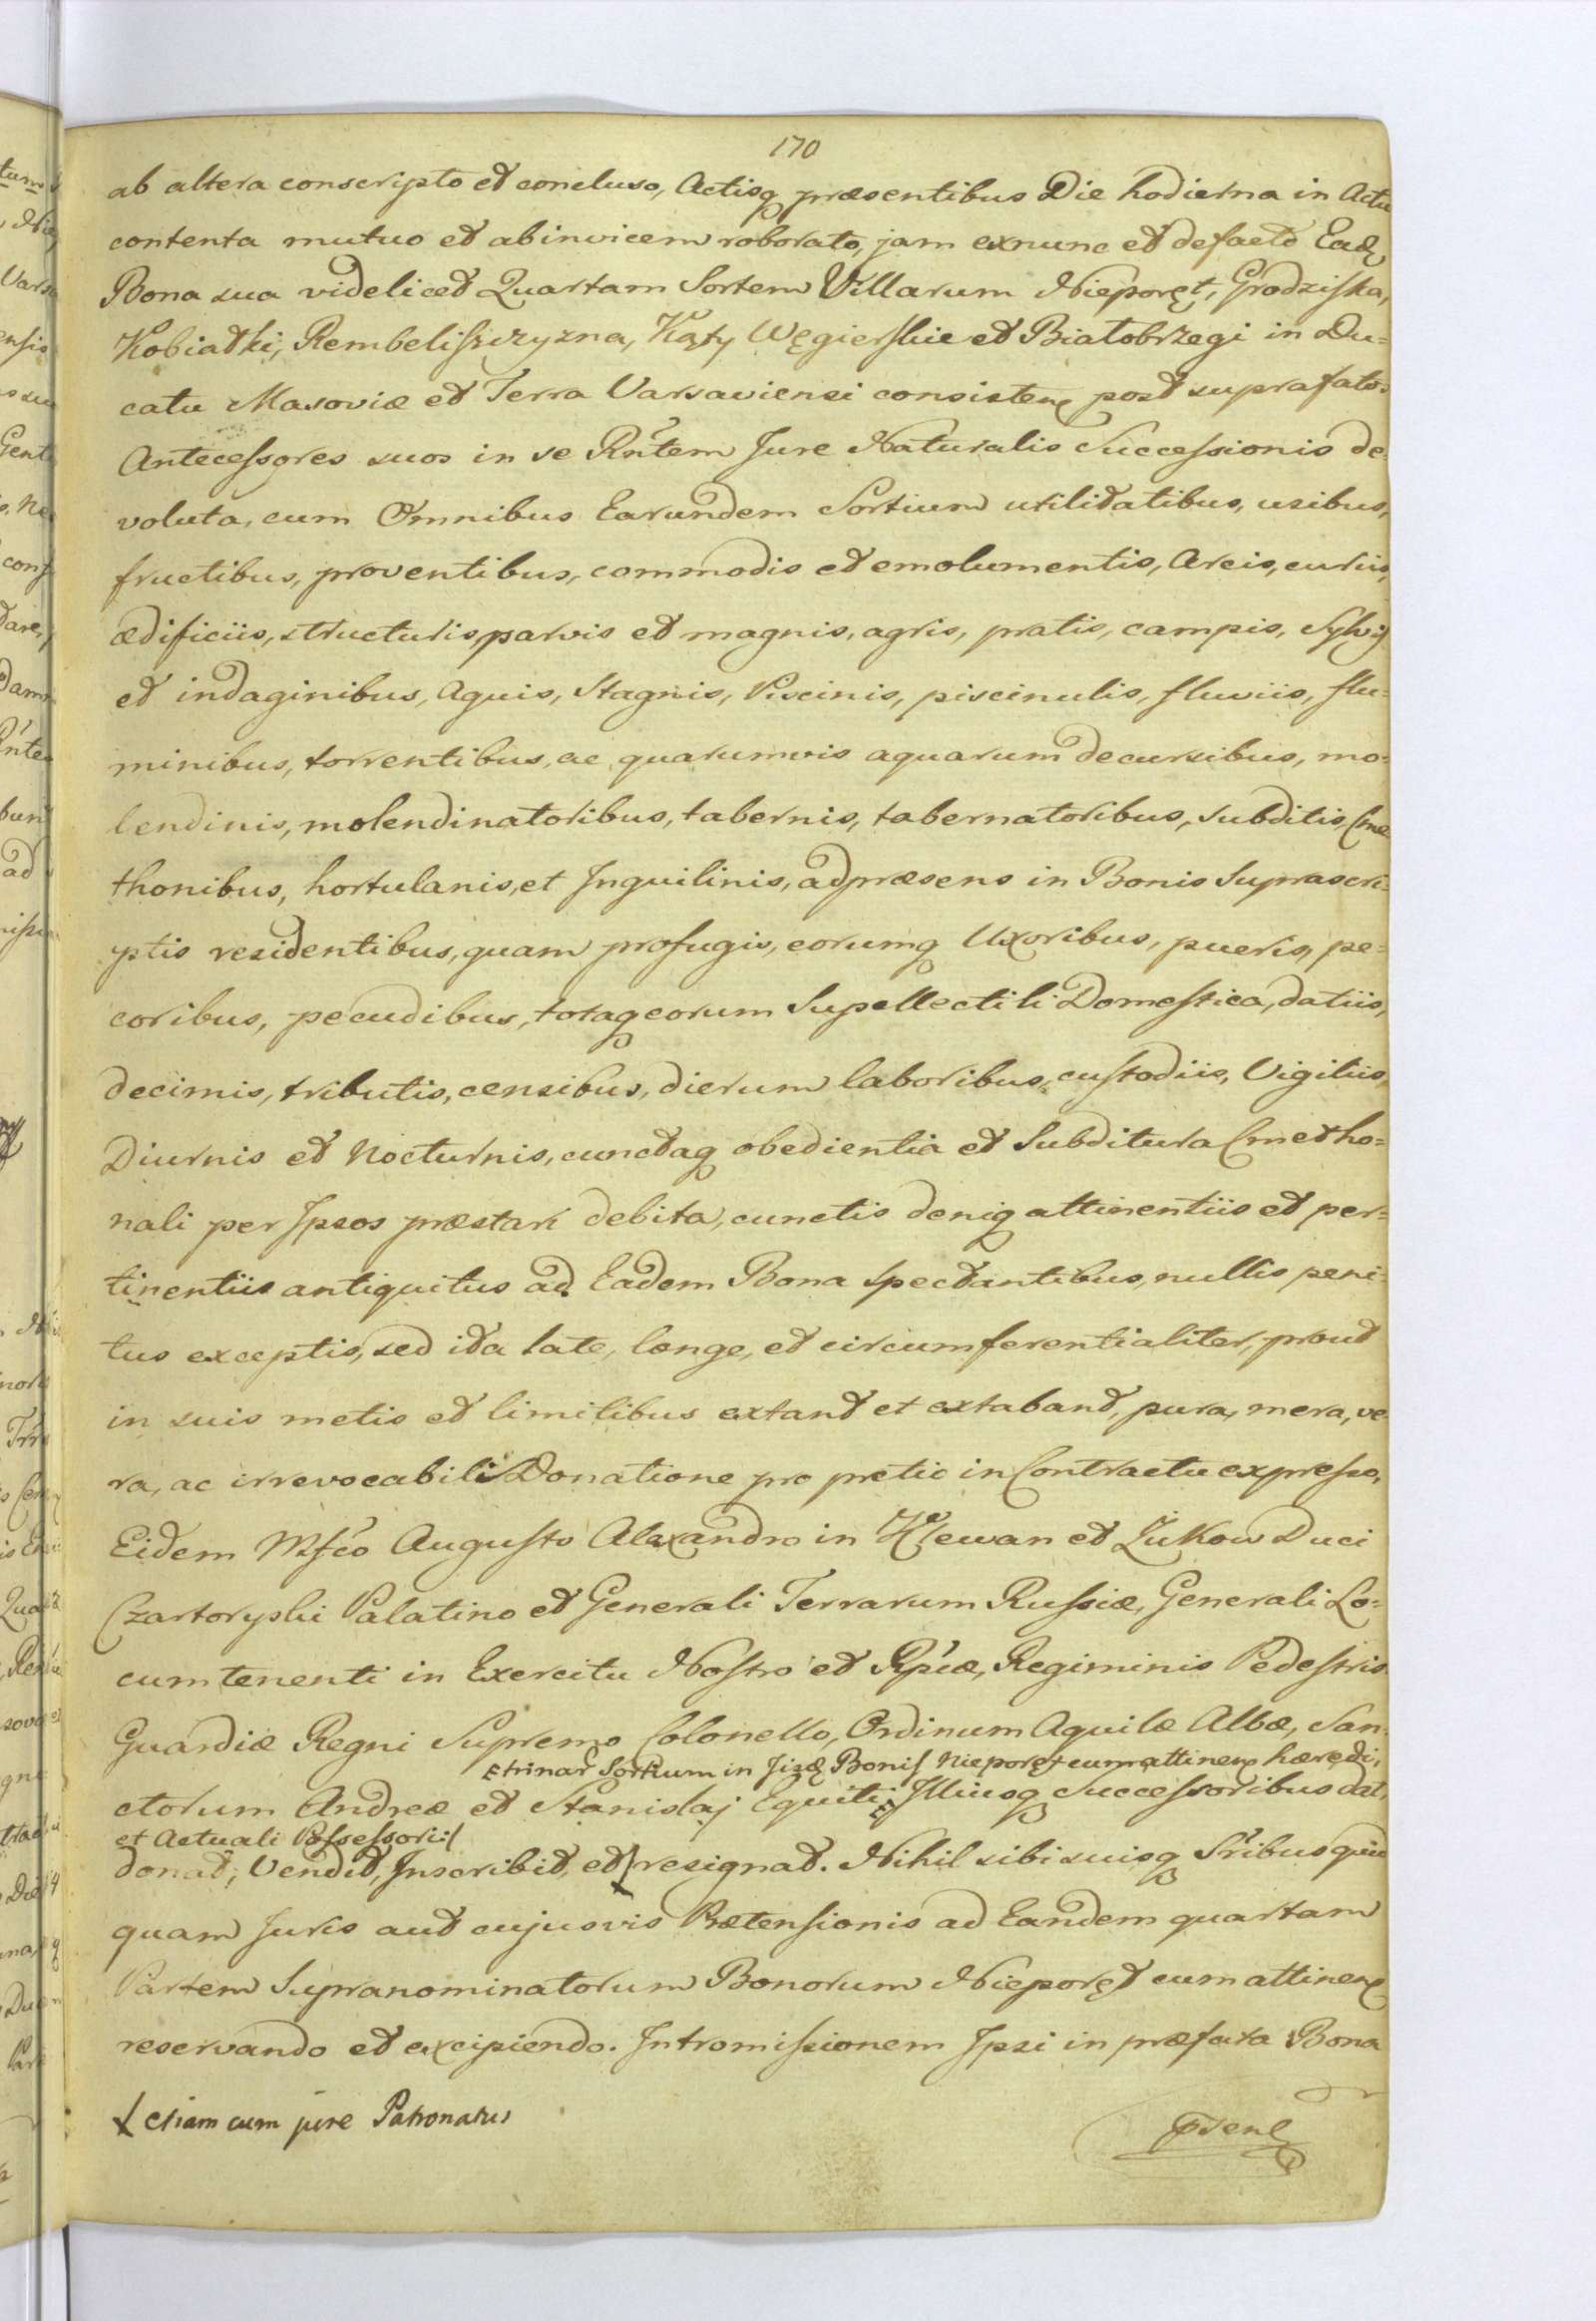 170
ab altera conscripto et concluso, Actisq præsentibus Die hodierna in Actu
contenta mutuo et abinvicem roborato, jam exnunc et defacto Eadę
Bona sua videlicet Quartam Sortem Villarum Nieporęt, Grodziska,
Kobiałki, Rembeliszczyzna, Kąty Węgierskie et Białobrzegi in Du=
catu Masoviæ et Terra Varsaviensi consisteñ post suprafatos
Antecessores suos in se Rñtem Jure Naturalis Successionis de=
voluta, cum Omnibus Earundem Sortium utilitatibus, usibus,
fructibus, proventibus, commodis et emolumentis, Areis, curiis,
ædificiis, structuris, parvis et magnis, agris, pratis, campis, Sylvis
et indaginibus, Aquis, Stagnis, Piscinis, piscinulis, fluviis, flu=
minibus, torrentibus, ac quarumvis aquarum decursibus, mo=
lendinis, molendinatoribus, tabernis, tabernatoribus, subditis, Cme
thonibus, hortulanis, et Inquilinis, ad præsens in Bonis Suprascri=
ptis residentibus, quam profugis, eorumq Uxoribus, pueris, pe=
coribus, pecudibus, totaq eorum Supellectili Domestica, datiis,
decimis, tributis, censibus, dierum laboribus, custodiis, Vigiliis
Diurnis et Nocturnis, cunctaq obedientia et Subditura Cmetho=
nali per Ipsos præstari debita, cunctis deniq attinentiis et per=
tinentiis antiquitus ad Eadem Bona Spectantibus, nullis peni=
tus exceptis, sed ita late, longe, et circumferentialiter, prout
in suis metis et limitibus extant et extabant, pura, mera, ve=
ra, ac irrevocabili Donatione pro pretio in Contractu expresso,
Eidem Mfco Augusto Alexandro in Klewan et Żukow Duci
Czartoryski Palatino et Generali Terrarum Russiæ, Generali Lo=
cumtenenti in Exercitu Nostro et Rpcæ, Regiminis Pedestris
Guardiæ Regni Supremo Colonello, Ordinum Aquilæ Albæ, San=
trinar Sortium in Iisdę Bonis Nieporęt cum attineñ hæredi,
ctorum Andreæ et Stanislaj Equiti, Illiusq Successoribus dat,
et Actuali Possessori:/
donat, Vendit, Inscribit, et resignat. Nihil sibi suisq Sribus quid
quam Juris aut cujusvis Prætensionis ad Eandem quartam
Partem Supranominatorum Bonorum Nieporęt cum attineñ
reservando et excipiendo. Intromissionem Ipsi in præfata Bona
etiam cum jure Patronatus